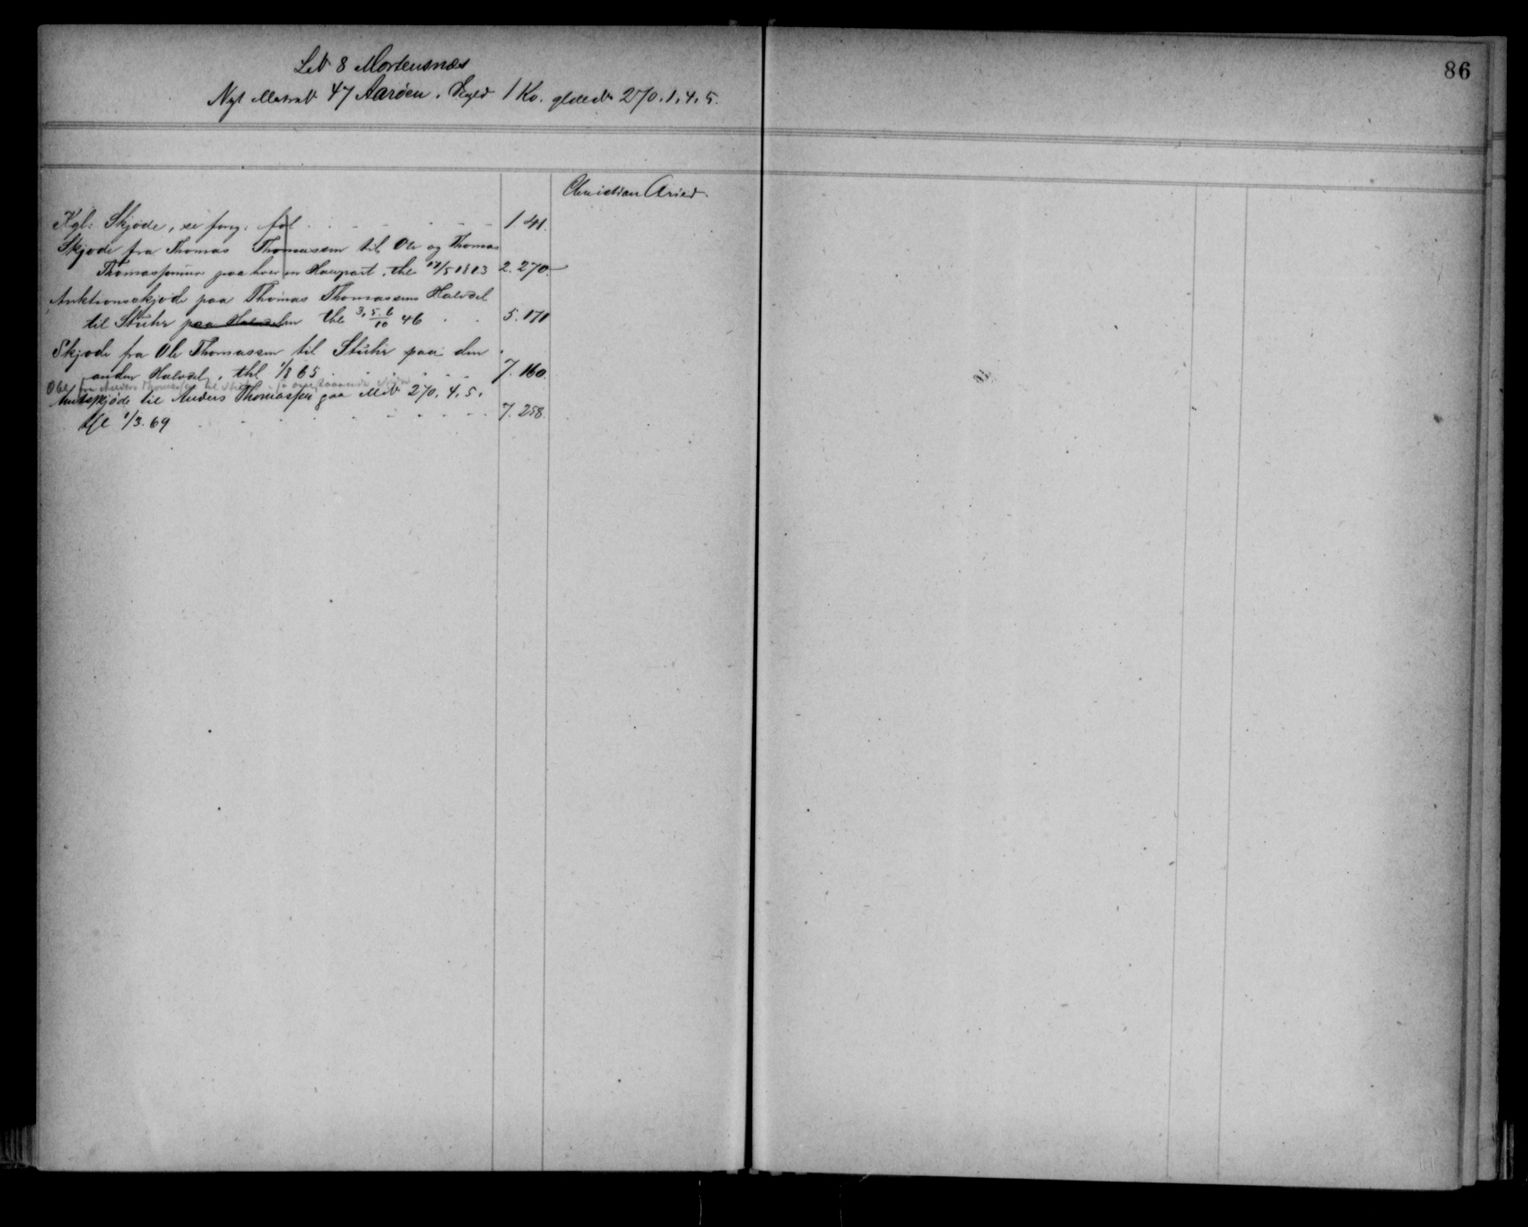 86
Litr 8 Mortensnæs
Nyt Matrnr 47 Aarøen. Skyld 1 Kr. gl. Mtr 270. 1, 4, 5.
Christian Aries
Kgl: Skjøde, se forg. fol . . . . . . 1 41.
Skjøde fra Thomas Thomassen til Ole og Thomas
Thomassønner paa hver en Halvpart, thl /5 1813 2. 270.
Auktionsskjøde paa Thomas Thomassens Halvdel
til Stuhr paa Halvdelen thl 3, 5. 6/10 46 . . 5. 171
Skjøde fra Ole Thomassen til Stuhr paa den
anden Halvdel, thl 1/8 65 . . . . . 7. 160.
Obl. fra Anders Thomassen til
Amtsskjøde til Anders Thomassen paa Mtr 270. 4, 5,
thl 1/3. 69 . . . . . . . . 7. 258.